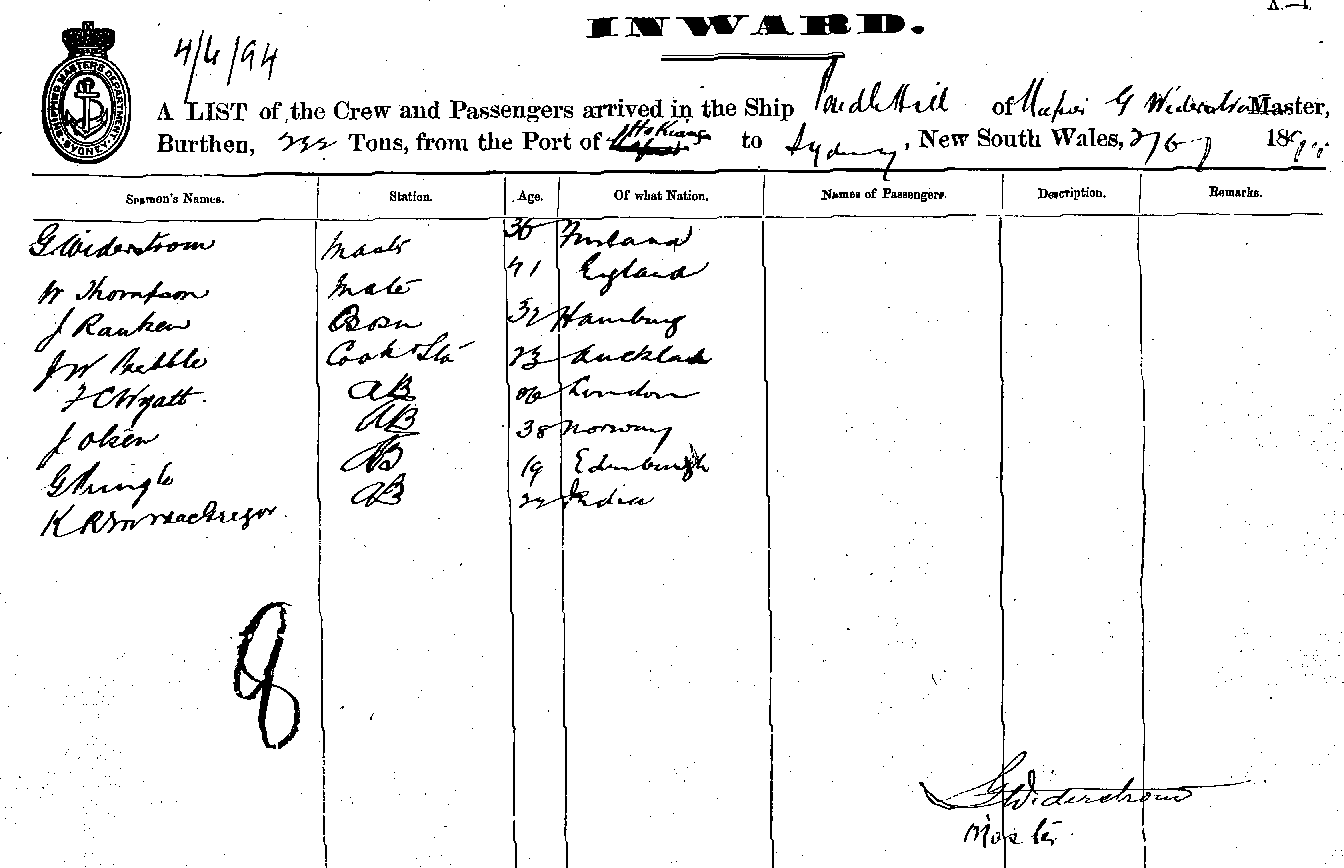 A.—4.
INWARD.
4/6/94
SHIPPING MASTERS DEPARTMENT SYDNEY
A LIST of the Crew and Passengers arrived in the Ship Pendle Hill of Napier G Widerstrom Master,
Burthen, 222 Tons, from the Port of Hokianga to Sydney, New South Wales, 18
Seamen's Names. Station. Age. Of what Nation. Names of Passengers. Description. Remarks.
G Widerstrom Master 36 Finland
W Thompson Mate 41 England
J Ranken Bosn 32 Hamburg
J W Prebble Cook & Std 23 Auckland
F C Wyatt. AB London
J Olsen AB 38 Norway
G Pringle AB 19 Edinburgh
K R MacGregor. AB 22 India
8
G Widerstrom
Master